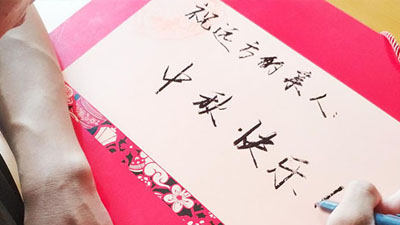 祝远方的亲人:
中秋快乐!